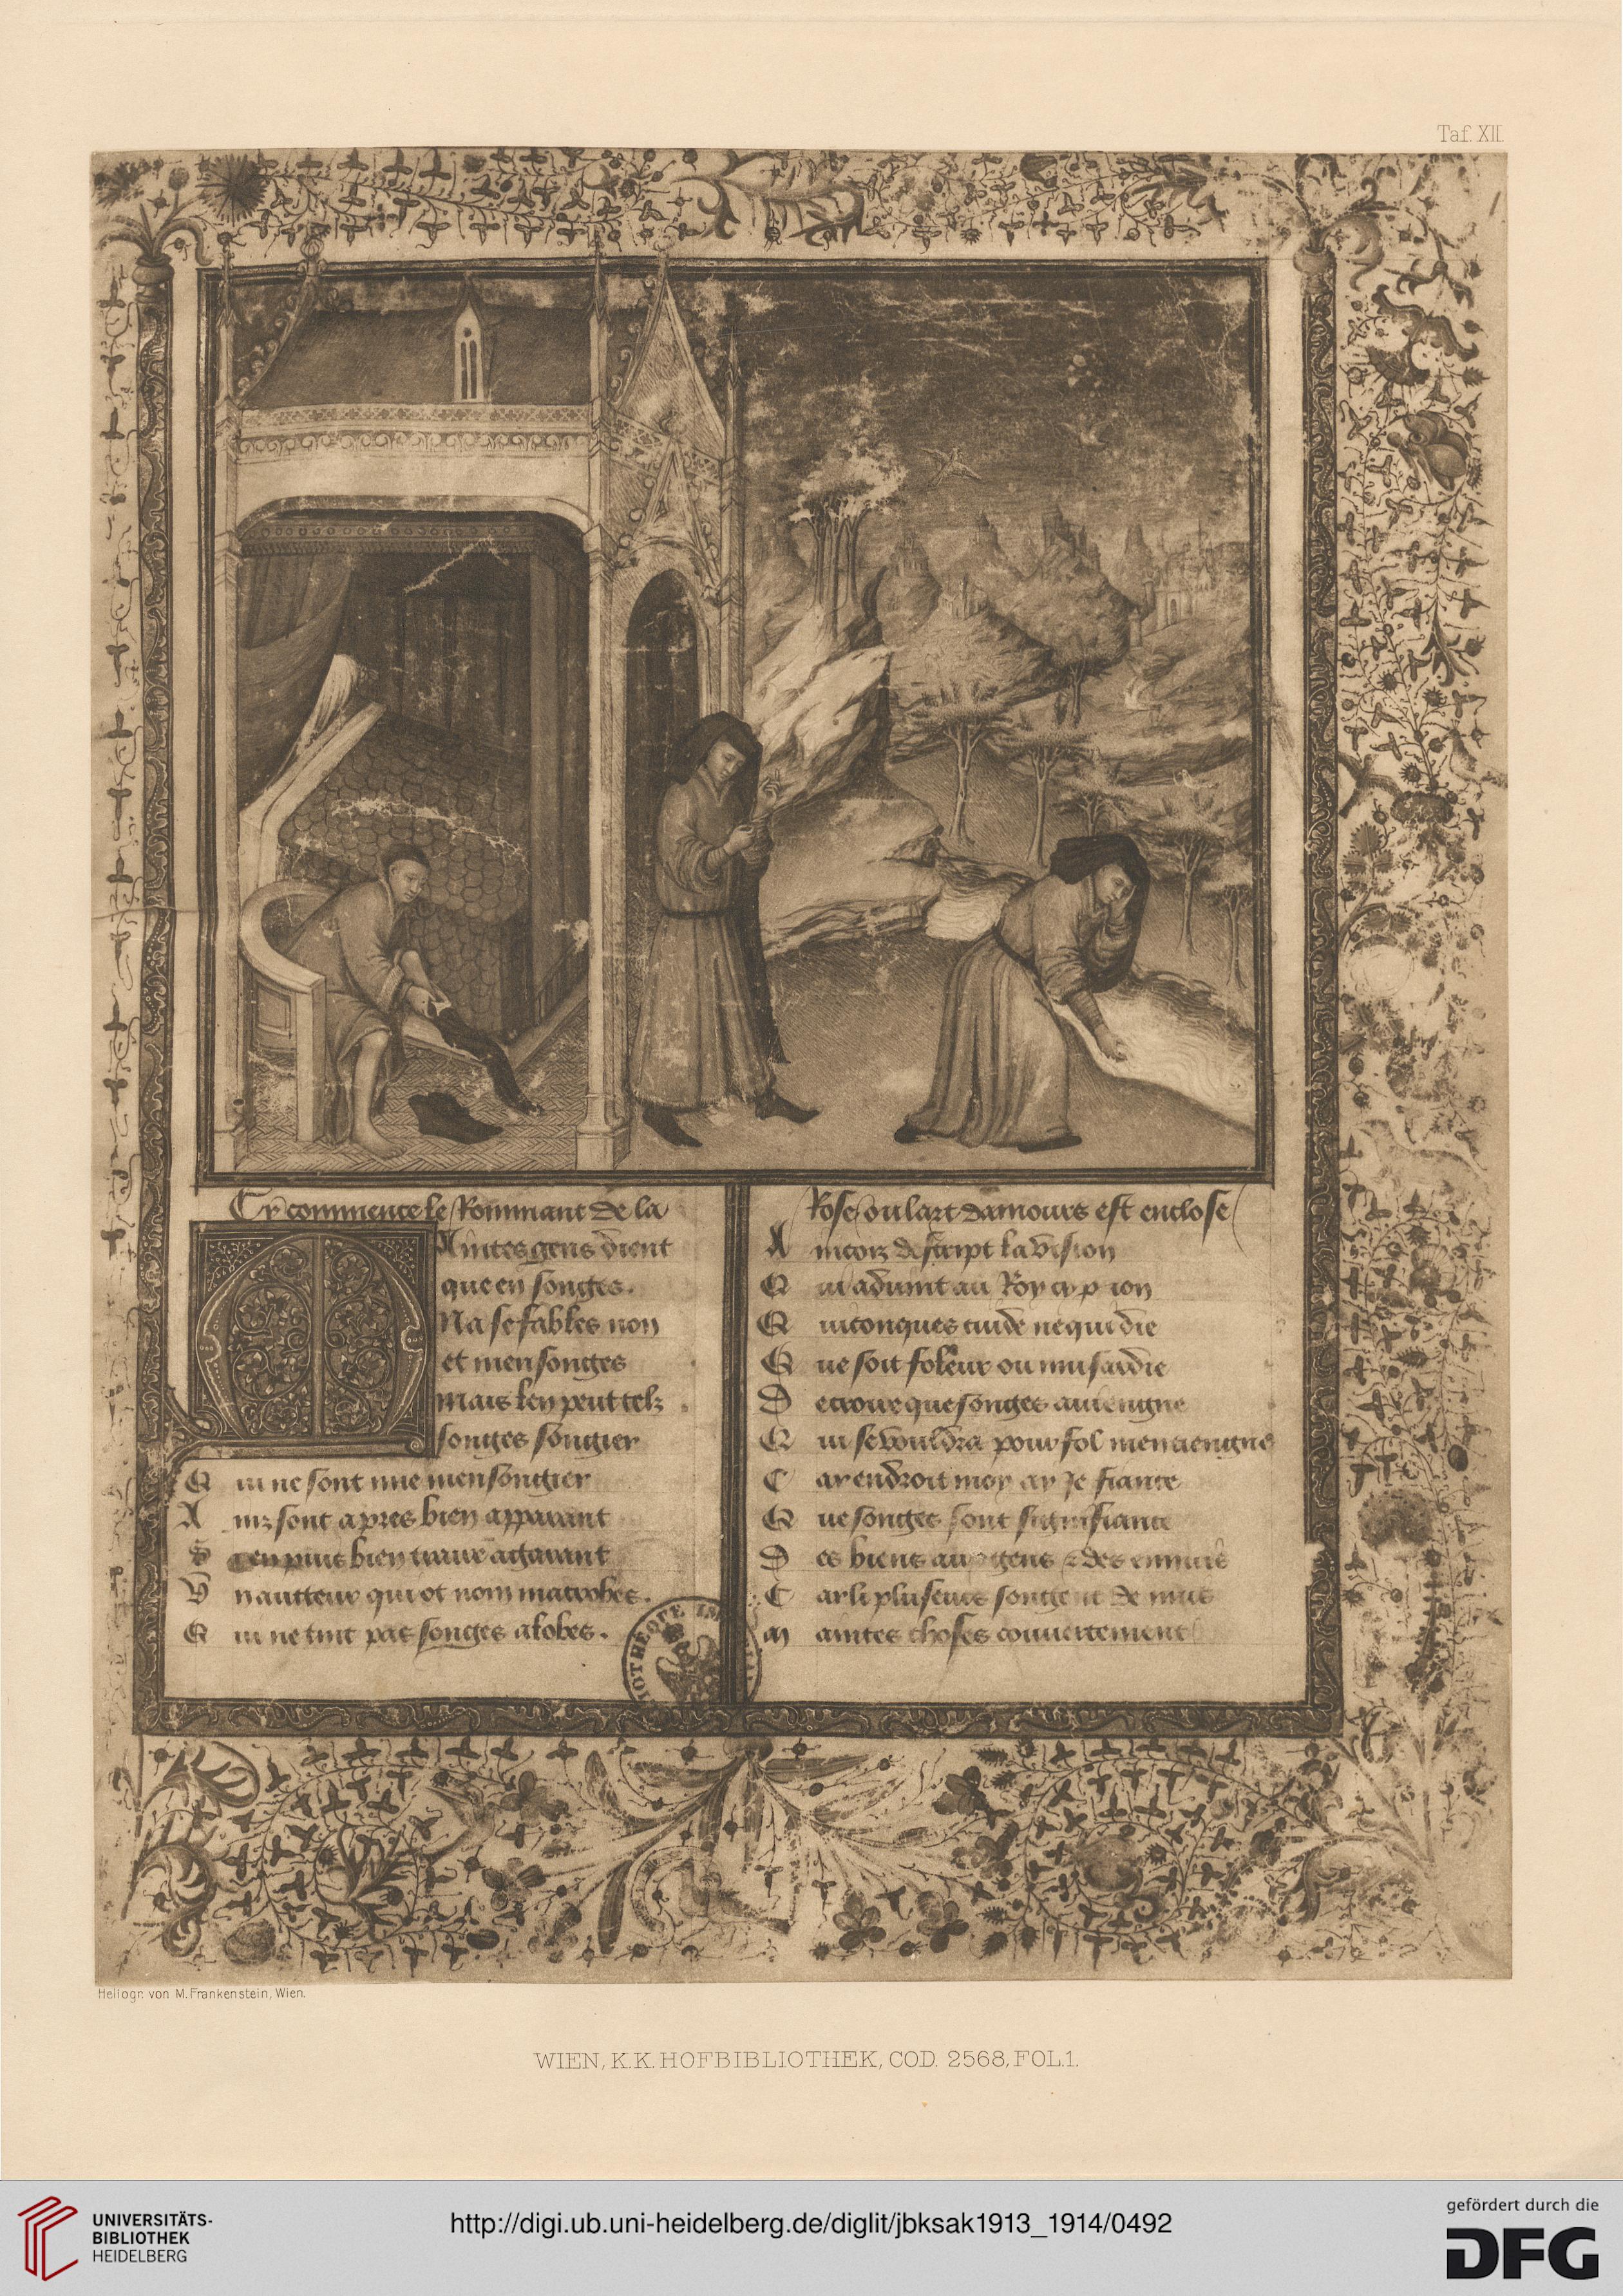 Taf. XII.
Cy commence le Rommant de la
Maintes gens dient
que en songes.
Na se fables non
et mensonges
Mais len peut telz
songes songier
Q ui ne sont mie mensongier
A inz sont apres bien apparant
bien
V n aucteur qui ot nom macrobes.
Q ui ne tint pas songes a lobes.
Rose ou lart damours est enclose
A incois descript la vision
Q ui advint au Roy cypion
Q uiconques cuide ne qui die
Q ue soit foleur ou musardie
D e croire que songes aviengne
Q ui se vouldra pour fol men tiengne
C ar endroit moy ay je fiance
Q ue songes sont signifiance
D es biens aux gens & des ennuis
C ar li pluseurs songent de nuis
M aintes choses couvertement
Heliogr. von M. Frankenstein, Wien.
WIEN, K. K. HOFBIBLIOTHEK, COD. 2568, FOL.1.
UNIVERSITÄTS-
BIBLIOTHEK
HEIDELBERG
http://digi.ub.uni-heidelberg.de/diglit/jbksak1913_1914/0492
gefördert durch die
DFG